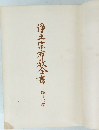 浄土宗布教全書